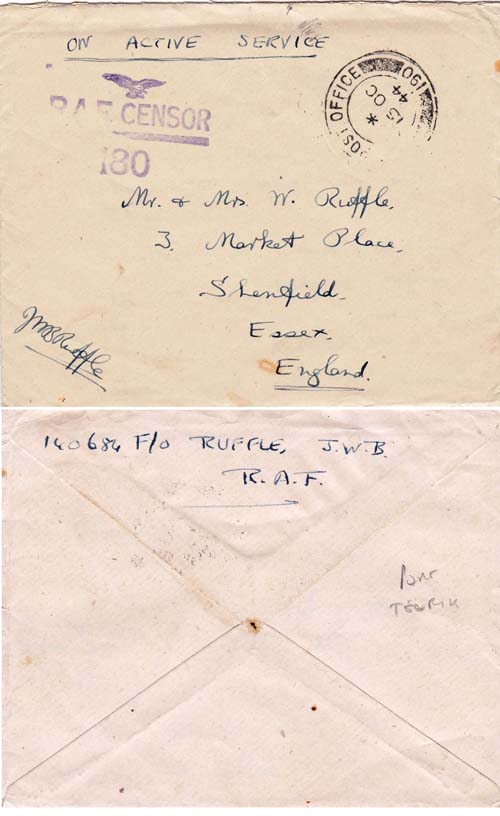 ON ACTIVE SERVICE
R.A.F. CENSOR
180
POST OFFICE 190
15 OC
44
Mr. & Mrs. W. Ruffle,
3, Market Place,
Shenfield.
Essex.
England.
JWBRuffle
140684 F/O RUFFLE, J.W.B.
R.A.F.